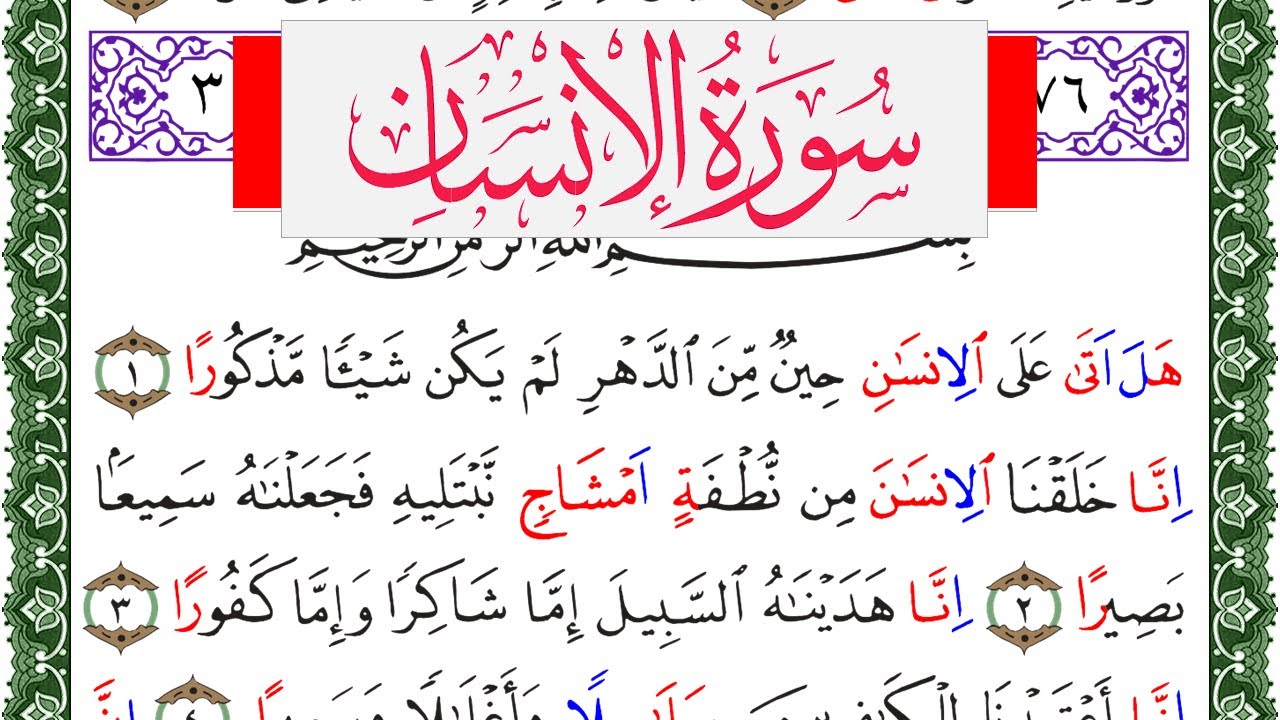 ٧٦
سُورَةُ الإِنسَانِ
٣
بِسْمِ اللَّهِ الرَّحْمَٰنِ الرَّحِيمِ
هَلَ اَتَىٰ عَلَى ٱلِانسَٰنِ حِينٌ مِّنَ ٱلدَّهْرِ لَمْ يَكُن شَيْـًٔا مَّذْكُورًا ١
اِنَّا خَلَقْنَا ٱلِانسَٰنَ مِن نُّطْفَةٍ اَمْشَاجٍ نَّبْتَلِيهِ فَجَعَلْنَٰهُ سَمِيعَۢا
بَصِيرًا ٢ اِنَّا هَدَيْنَٰهُ ٱلسَّبِيلَ إِمَّا شَاكِرًا وَإِمَّا كَفُورًا ٣